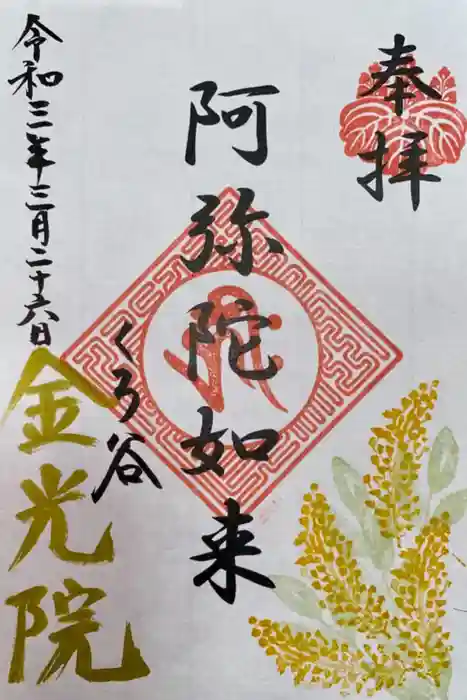 奉拝
阿弥陀如来
くろ谷
金光院
令和三年三月二十六日